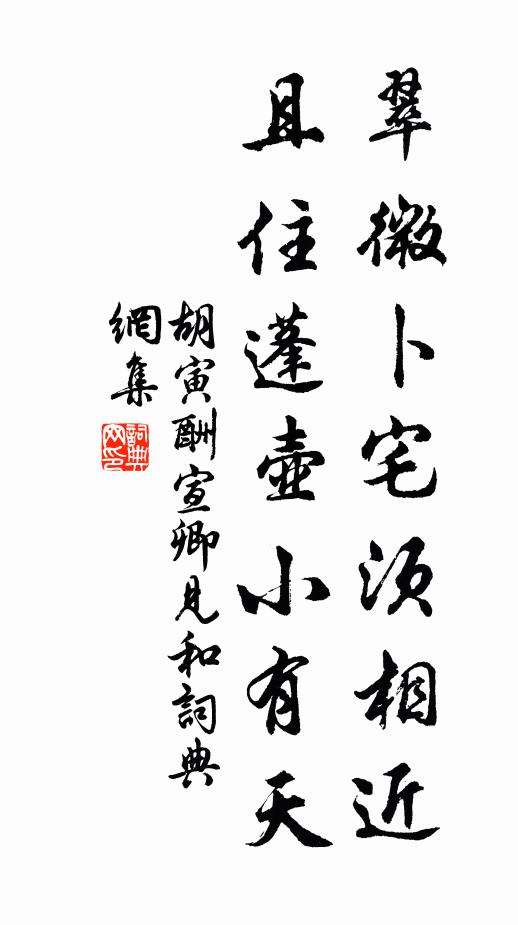 翠微卜宅須相近
且住蓬壺小有天
胡寅酬宣卿見和詞典
網集
詞典
网印